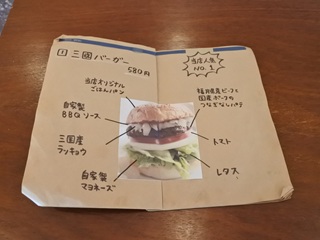 1 三國バーガー
580円
当店人気
NO.1
当店オリジナル
ごはんパン
自家製
BBQソース
三国産
ラッキョウ
自家製
マヨネーズ
福井県産ビーフと
国産ポークの
つなぎなしパテ
トマト
レタス